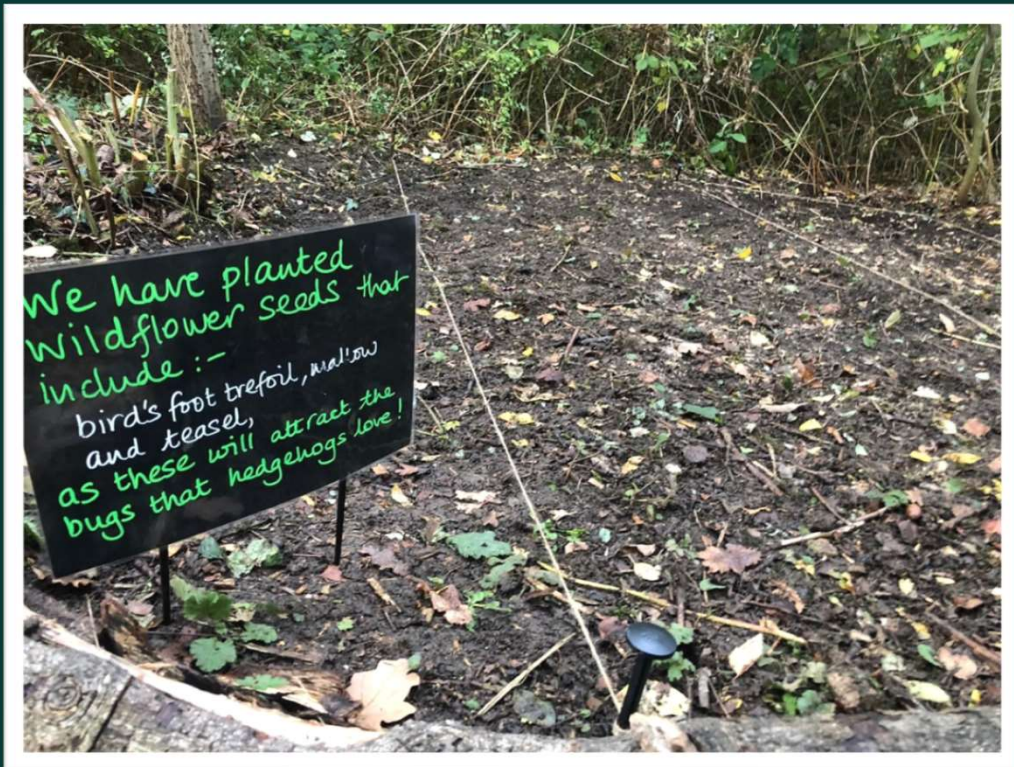 We have planted
wildflower seeds that
include:-
bird's foot trefoil, mallow
and teasel,
as these will attract the
bugs that hedgehogs love!